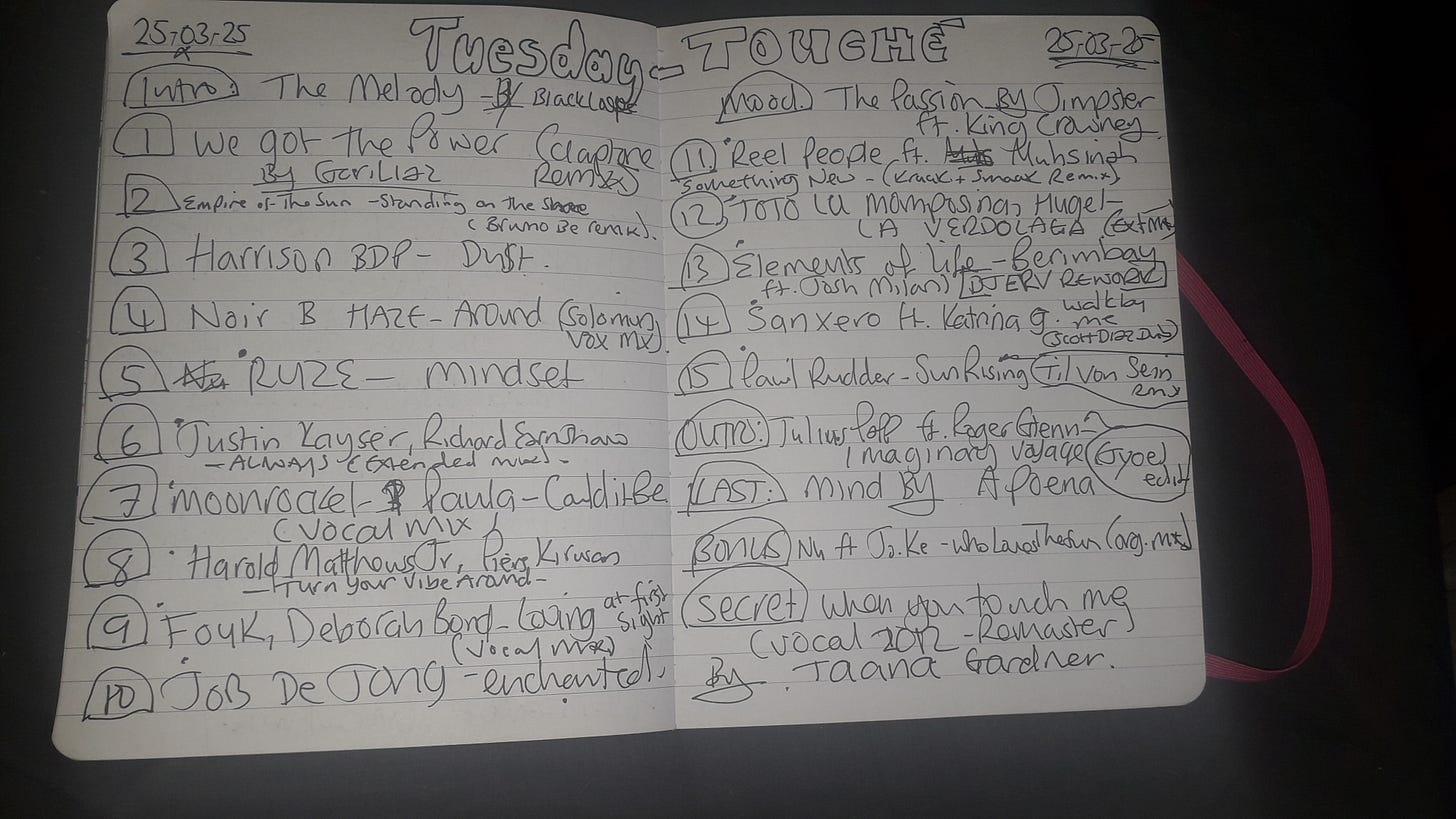 25-03-25
Tuesday-
Intro: The Melody - By Blackloops
1 We got the Power (Claptone
By Gorillaz Remix)
2 Empire of The Sun - Standing on the Shore
(Bruno Be remix).
3 Harrison BDP - Dust.
4 Noir & HAZE - Around (Solomun
Vox Mx).
5 RUZE - mindset
6 Justin Kayser, Richard Earnshaw
- ALWAYS (Extended mix) -
7 Moonrocket - Paula - Could it Be
(Vocal mix)
8 Harold Matthews Jr, Piers Kirwan
- Turn Your Vibe Around -
9 Fouk, Deborah Bond - Loving at first
sight
(Vocal mix)
10 JOB De Jong - enchanted.
TOUCHÉ 25-03-25
Mood. The Passion By Jimpster
ft. King Crowney
11 Reel People ft. Muhsinah
Something New - (Kraak + Smaak Remix)
12 TOTO La Momposina, Hugel -
LA VERDOLAGA (Ext Mx)
13 Elements of life - Berimbay
ft. Josh Milan) DJ ERV REWORK
14 Sanxero ft. Katrina g. walk by
me
(Scott Diaz Dub)
15 Paul Rudder - Sun Rising (Til Von Sein
Rmx
OUTRO: Julius Papp ft. Roger Glenn -
Imaginary Voyage (Gyoe)
edit
LAST: Mind By Apoena
BONUS Nu ft Jo.Ke - who Loves The sun (org. mx)
Secret when you touch me
(Vocal 2012 - Remaster)
By Taana Gardner.